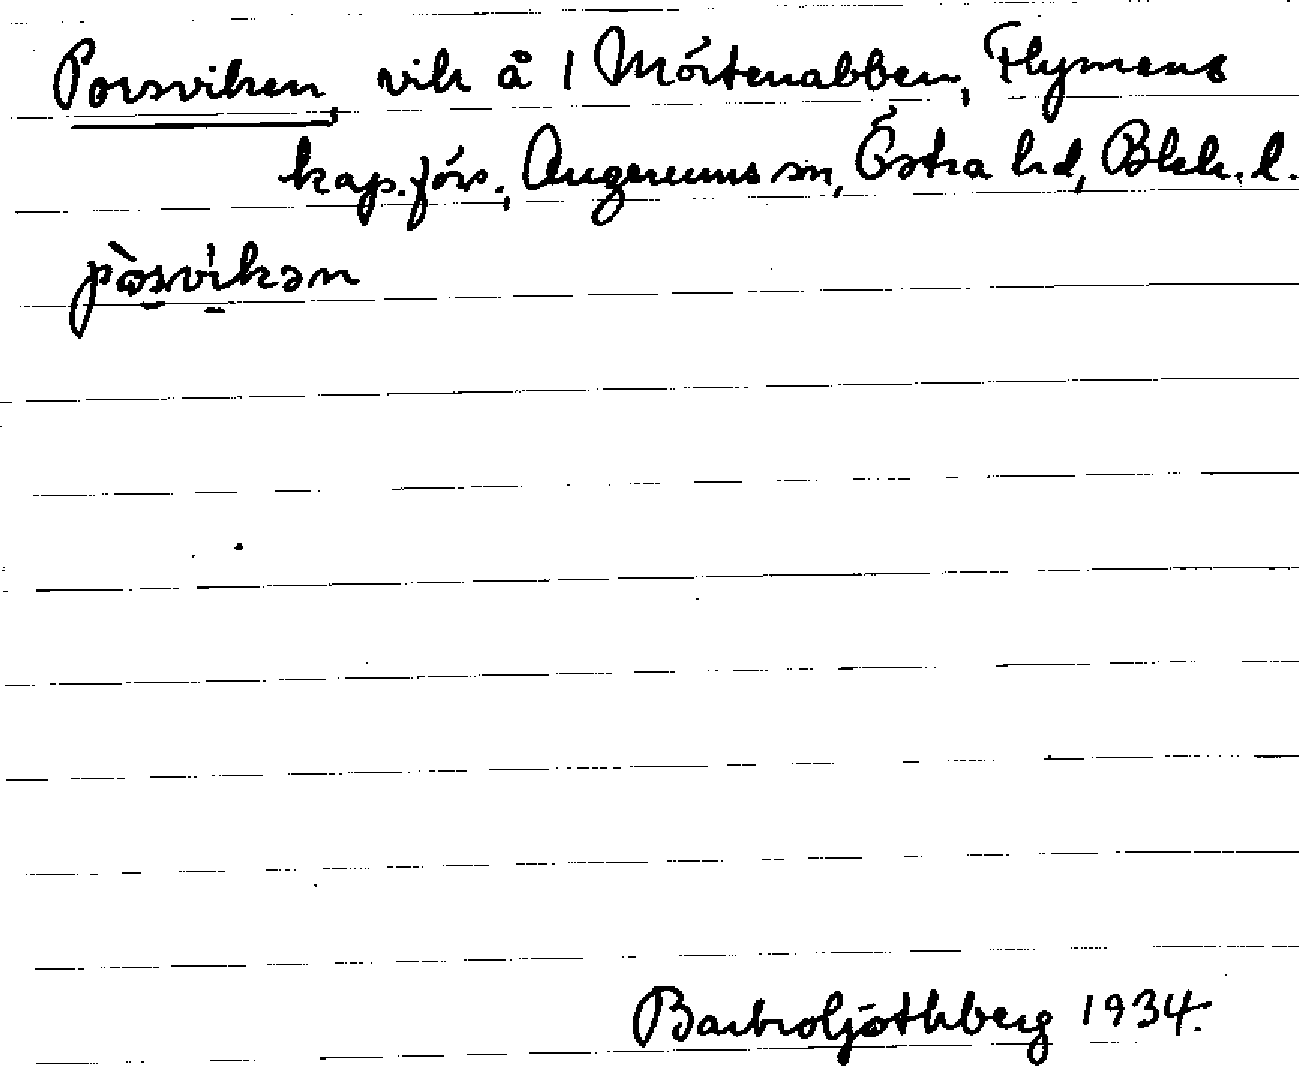 Porsviken, vik å 1 Mörtenabben, Flymens
kap. förs., Augerums sn, Östra hd, Blek. l.
pòsvíkən
Barbro Ljöthberg 1934.